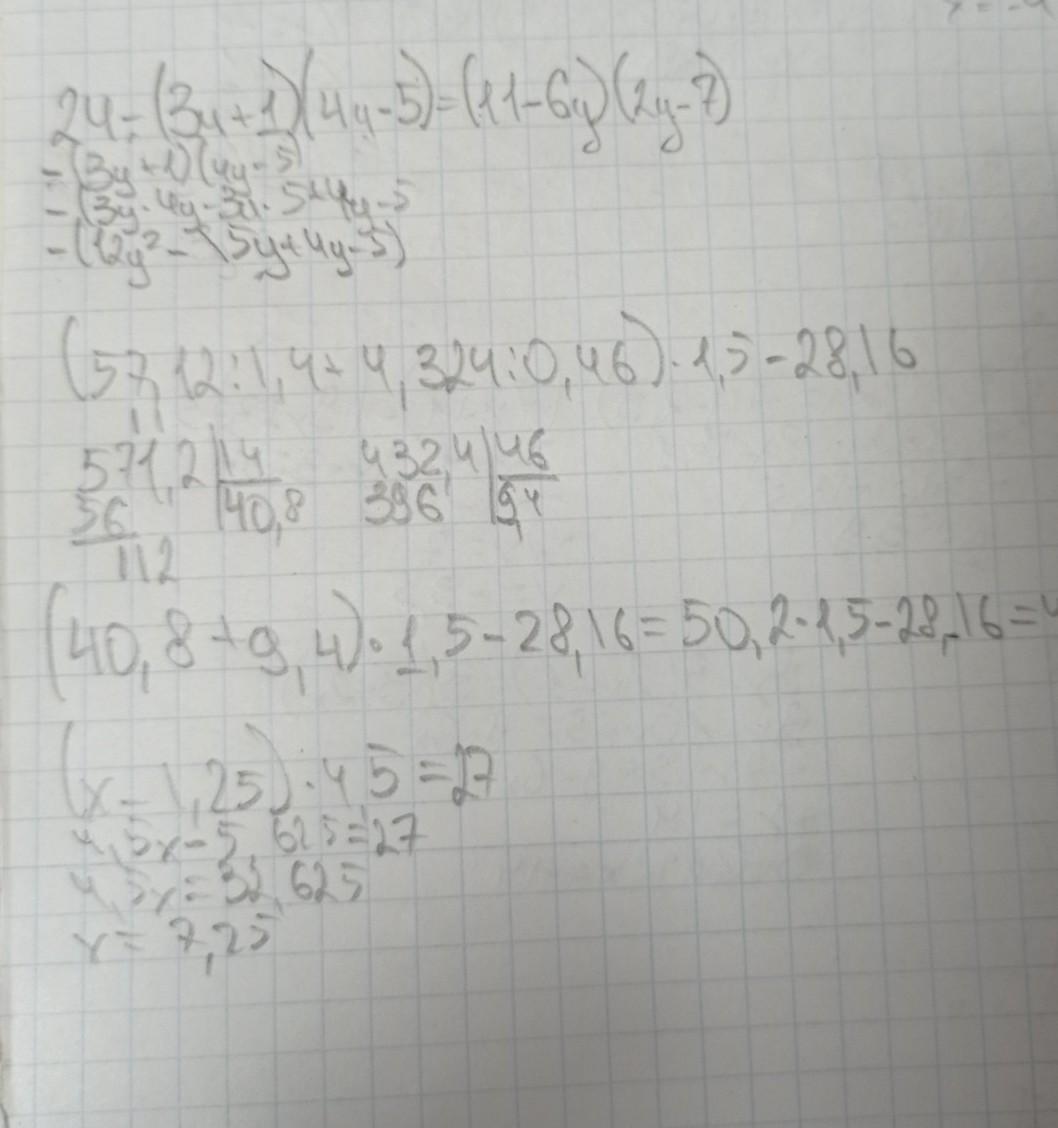 24-(3y+1)(4y-5)=(11-6y)(2y-7)
-(3y+1)(4y-5)
-(3y·4y-3y·5+4y-5
-(12y²-15y+4y-5)
(57,12:1,4+4,324:0,46)·1,5-28,16
571,2|14 432,4|46
56 |40,8 396 |9,4
112
(40,8+9,4)·1,5-28,16=50,2·1,5-28,16=
(x-1,25)·4,5=27
4,5x-5,625=27
4,5x=32,625
x=7,25